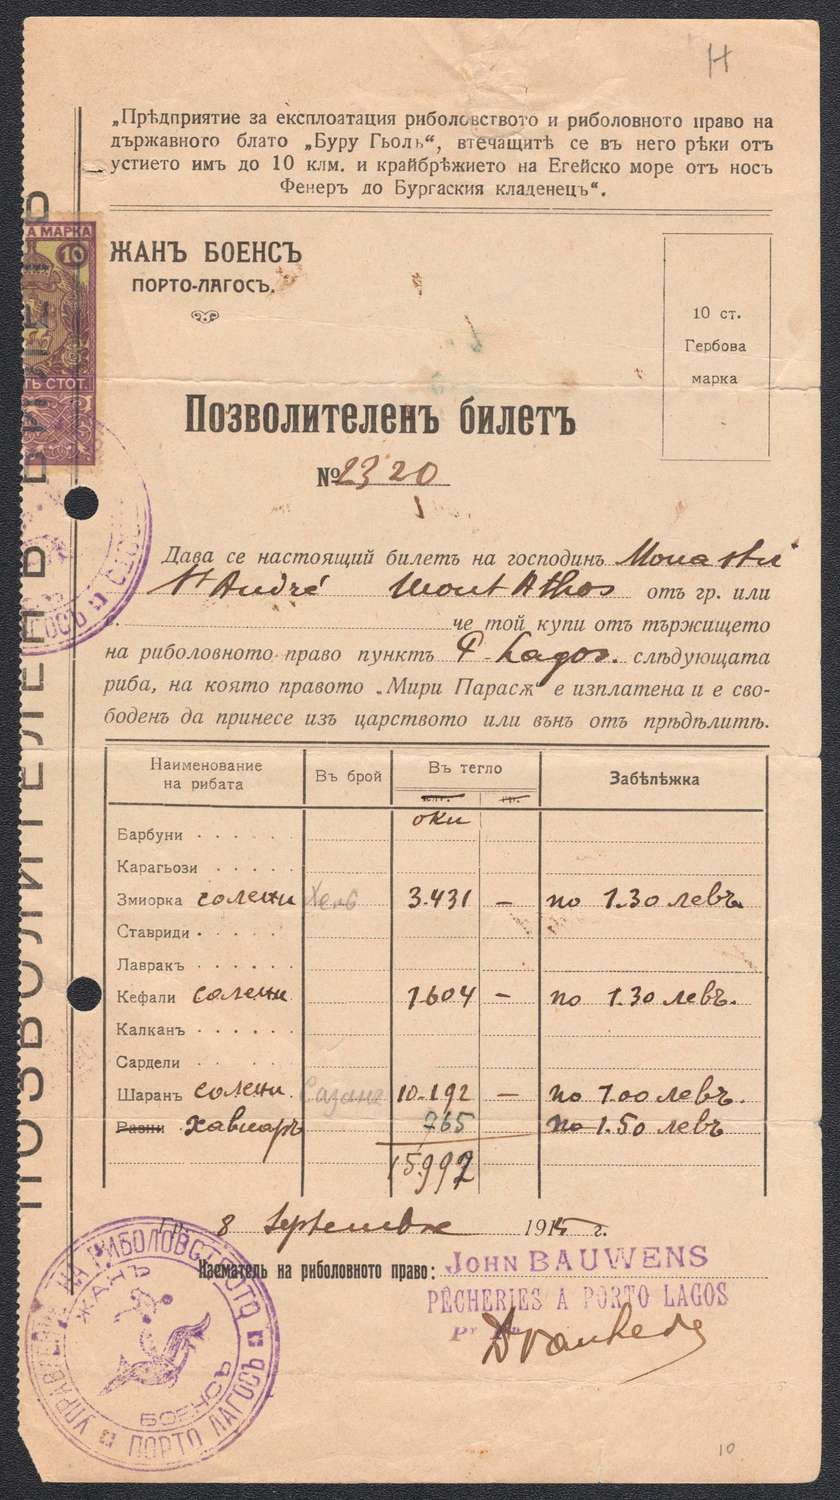 H
„Прѣдприятие за експлоатация риболовството и риболовното право на
държавного блато „Буру Гьолъ“, втечащитѣ се въ него рѣки отъ
устието имъ до 10 клм. и крайбрѣжието на Егейско море отъ носъ
Фенеръ до Бургаския кладенецъ“.
А МАРКА
10
ТЬ СТОТ.
ЖАНЪ БОЕНСЪ
ПОРТО-ЛАГОСЪ.
10 ст.
Гербова
марка
Позволителенъ билетъ
№ 2320
Дава се настоящий билетъ на господинъ Monastir
St André Mont Athos отъ гр. или
че той купи отъ тържището
на риболовното право пунктъ P. Lagos. слѣдующата
риба, на която правото „Мири Парасѫ е изплатена и е сво-
боденъ да принесе изъ царството или вънъ отъ прѣдѣлитѣ.
Наименование на рибата Въ брой Въ тегло Забѣлѣжка
клг. гр.
оки
Барбуни
Карагьози
Змиорка солени 3.431 — по 1.30 левъ.
Ставриди
Лавракъ
Кефали солени 1604 — по 1.30 левъ.
Калканъ
Сардели
Шаранъ солени Сазанъ 10.192 — по 1.00 левъ.
Разни хавиаръ 765 по 1.50 левъ
15.992
8 Septembre 1915 г.
Наематель на риболовното право: JOHN BAUWENS
PÊCHERIES A PORTO LAGOS
УПРАВЛЕНИЕ НА РИБОЛОВСТВОТО
ЖАНЪ
БОЕНСЪ
ПОРТО ЛАГОСЪ
ПОЗВОЛИТЕЛЕНЪ БИЛЕТЪ
10